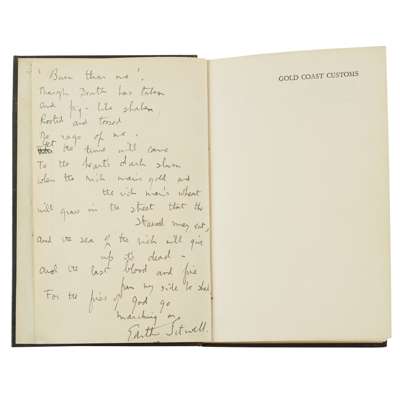 'Burn thou me'.
Though Death has taken
And pig-like shaken,
Rooted and tossed
The rags of me -
Yet
the time will come
To the heart's dark slum
When the rich man's gold and
the rich man's wheat
Will grow in the street that the
starved may eat,
And the sea of the rich will give
up its dead -
And the last blood and fire
from my side be shed
For the fires of God go
marching on.
Edith Sitwell.
GOLD COAST CUSTOMS